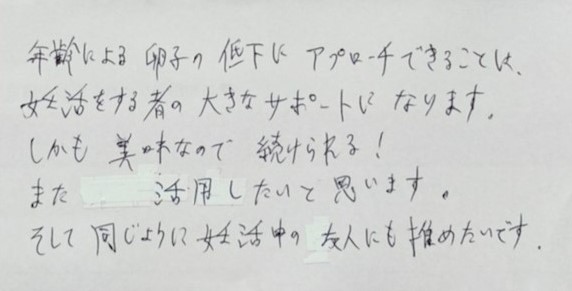 年齢による 卵子の 低下に アプローチできることは、
妊活をする者の 大きなサポートに なります。
しかも 美味なので 続けられる!
また 活用したいと 思います。
そして 同じように 妊活中の 友人にも 推めたいです.